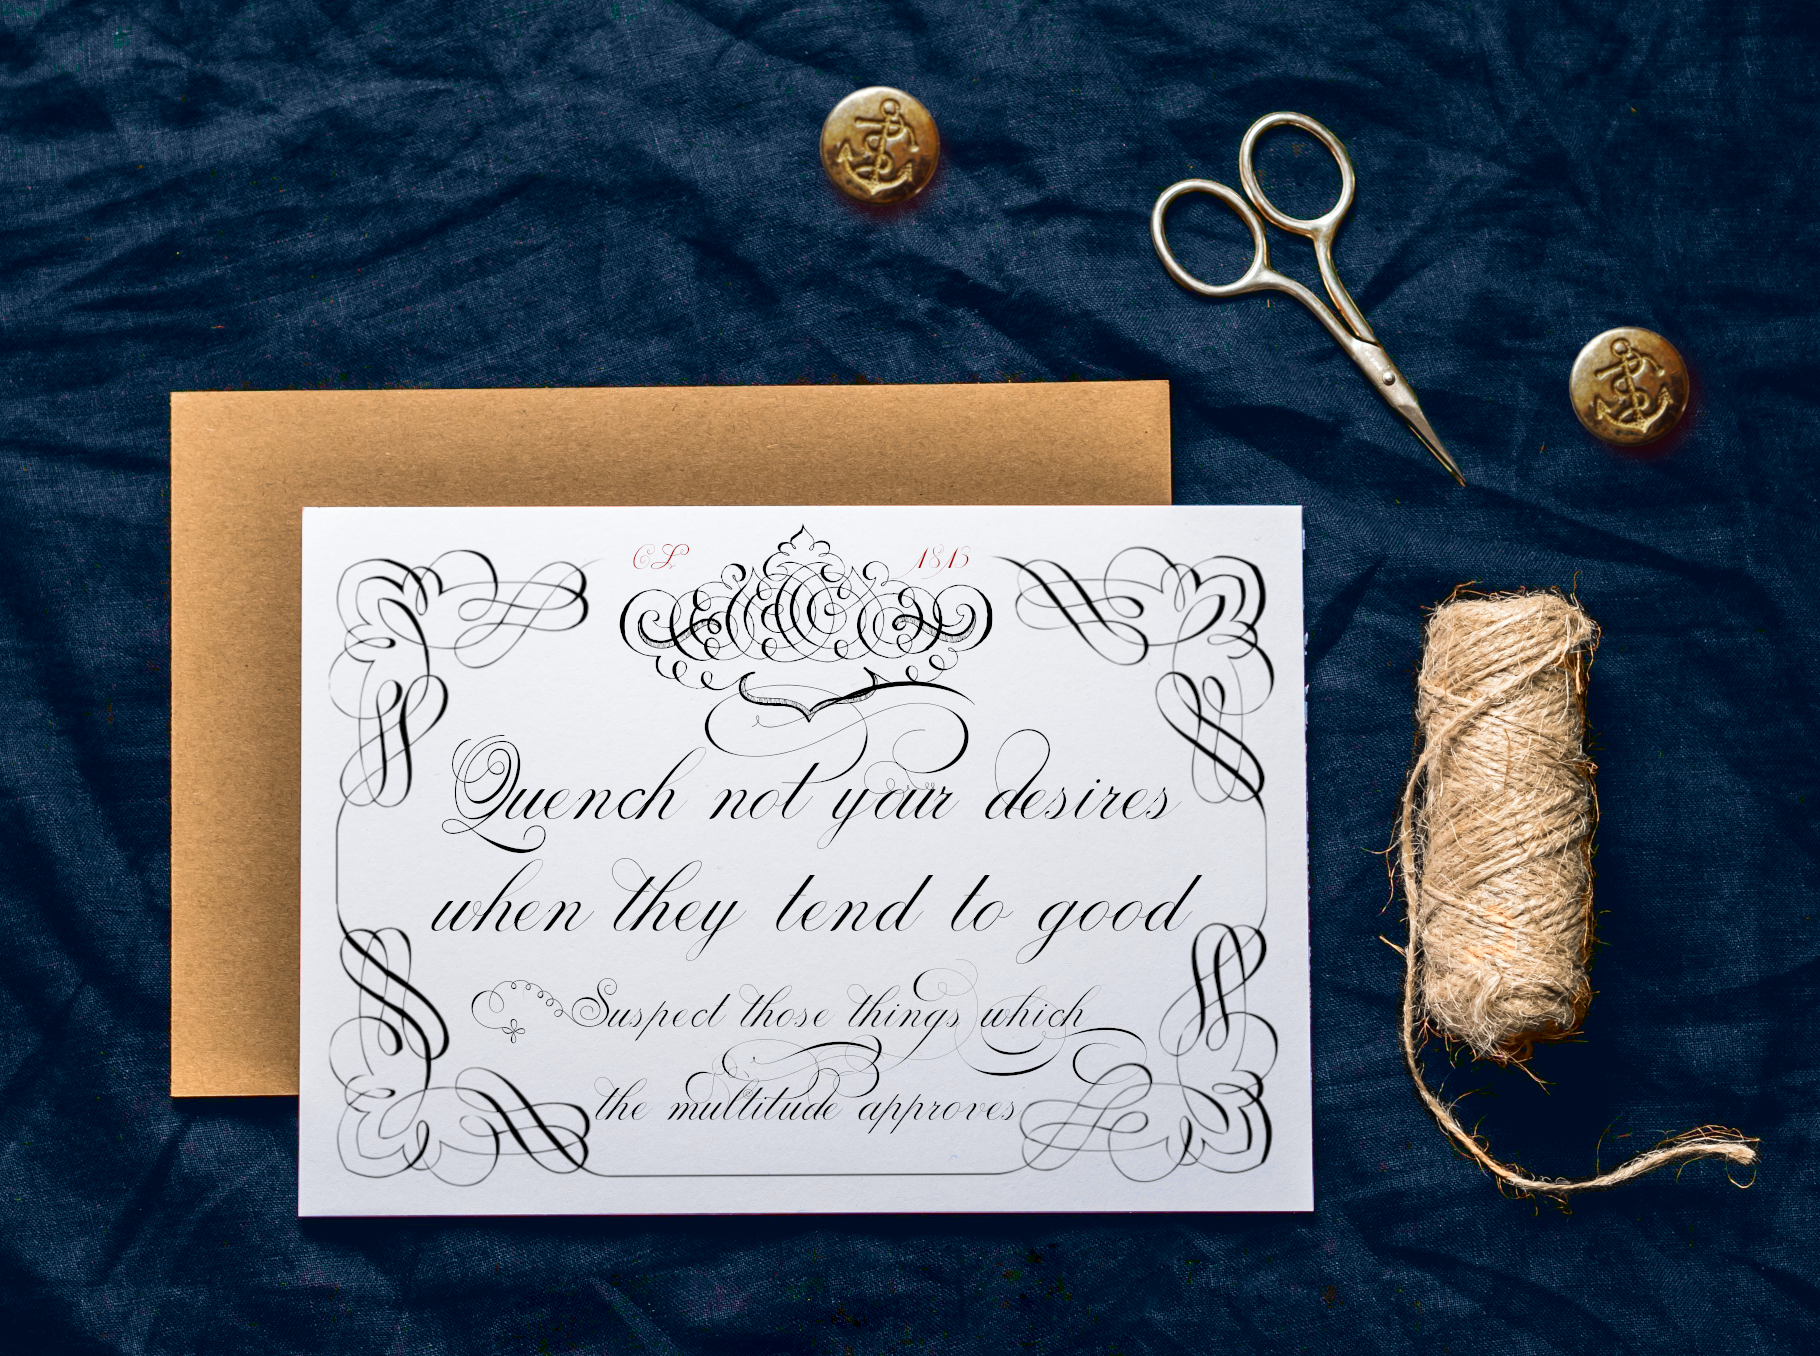 CL 1813
Quench not your desires
when they tend to good
Suspect those things which
the multitude approves